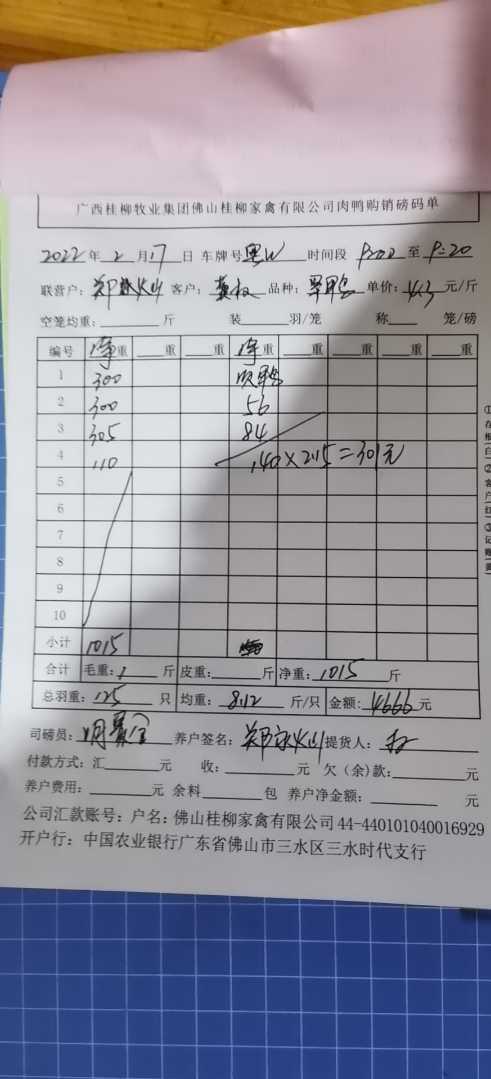 广西桂柳牧业集团佛山桂柳家禽有限公司肉鸭购销磅码单
2022年2月17日 车牌号 时间段 至 P=20
联营户: 郑永火山 客户: 品种: 单价: 元/斤
空笼均重: 斤 装 羽/笼 称 笼/磅
编号 净重 重 重 净重 重 重 重 重
1 300
2 300 56
3 305 84
4 110 140×2.15=301元
5
6
7
8
9
10
小计 1015
合计 毛重: 斤 皮重: 斤 净重: 1015 斤
总羽重: 125 只 均重: 8.12 斤/只 金额: 4666元
司磅员: 养户签名: 郑永火山 提货人:
付款方式: 汇 元 收: 元 欠(余)款: 元
养户费用: 元 余料 包 养户净金额: 元
公司汇款账号: 户名: 佛山桂柳家禽有限公司 44-440101040016929
开户行: 中国农业银行广东省佛山市三水区三水时代支行